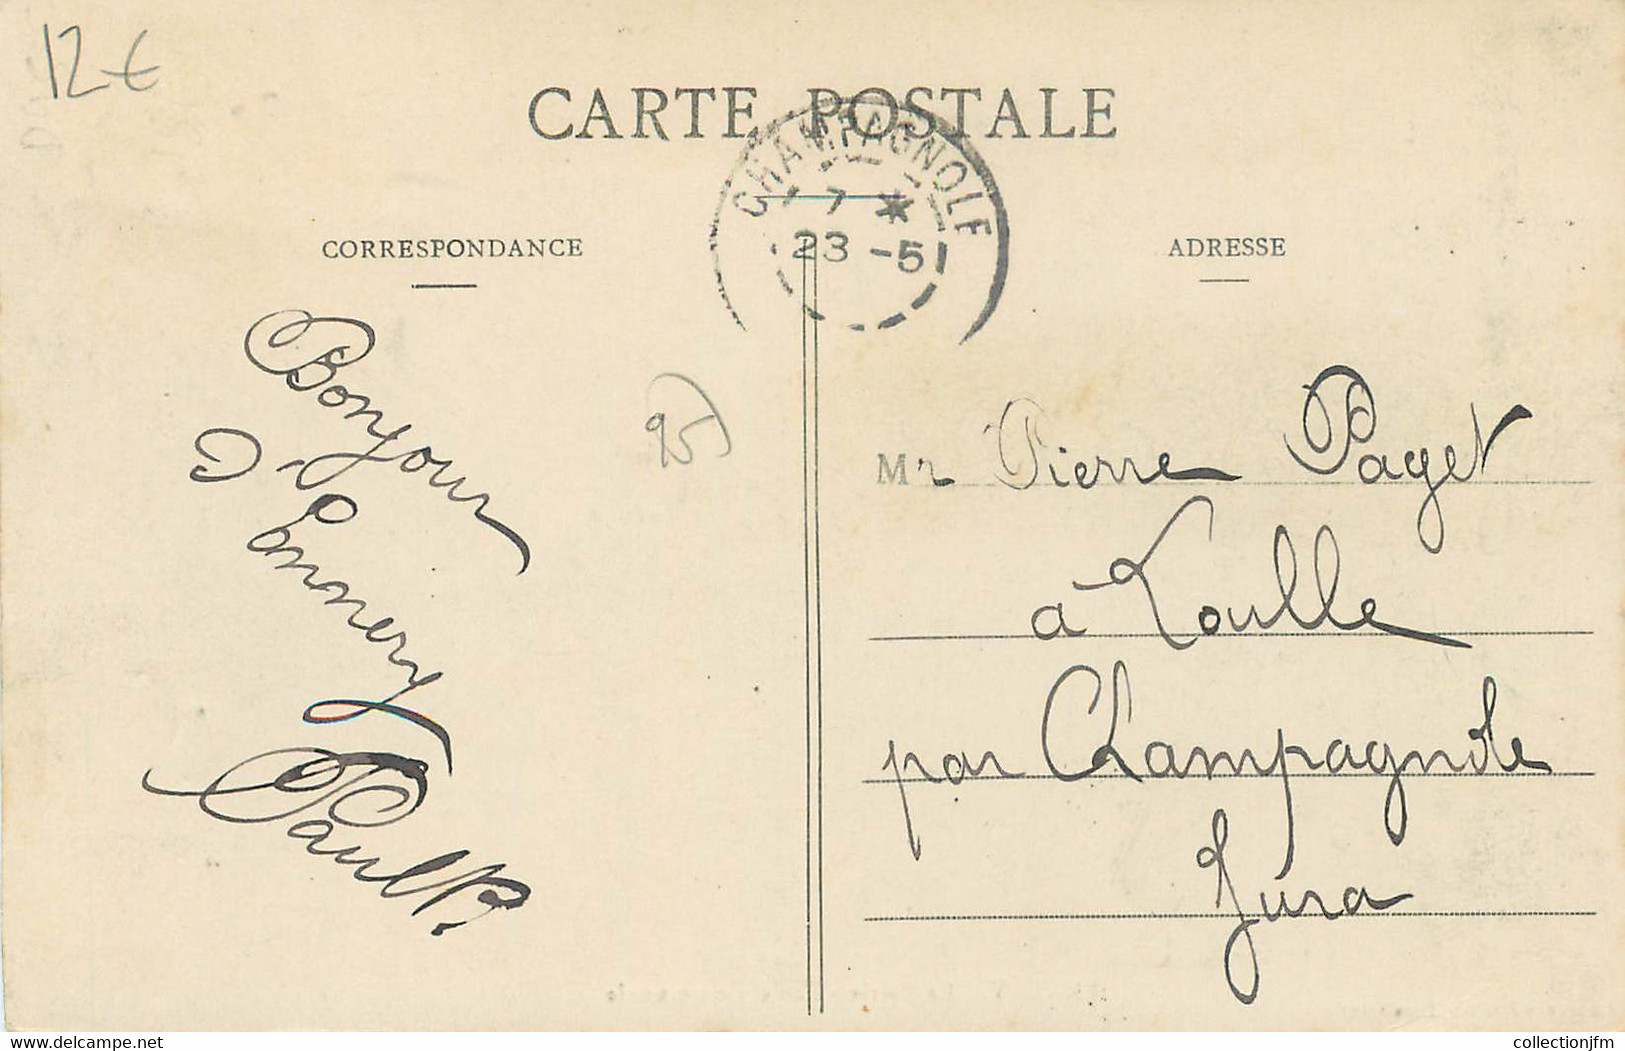 12€
CARTE POSTALE
CHAMPAGNOLE
7 *
23 -5
CORRESPONDANCE
ADRESSE
Bonjour
D'Ennery
Paul B.
25
Mr Pierre Paget
à Loulle
par Champagnole
Jura
www.delcampe.net
collectionjfm